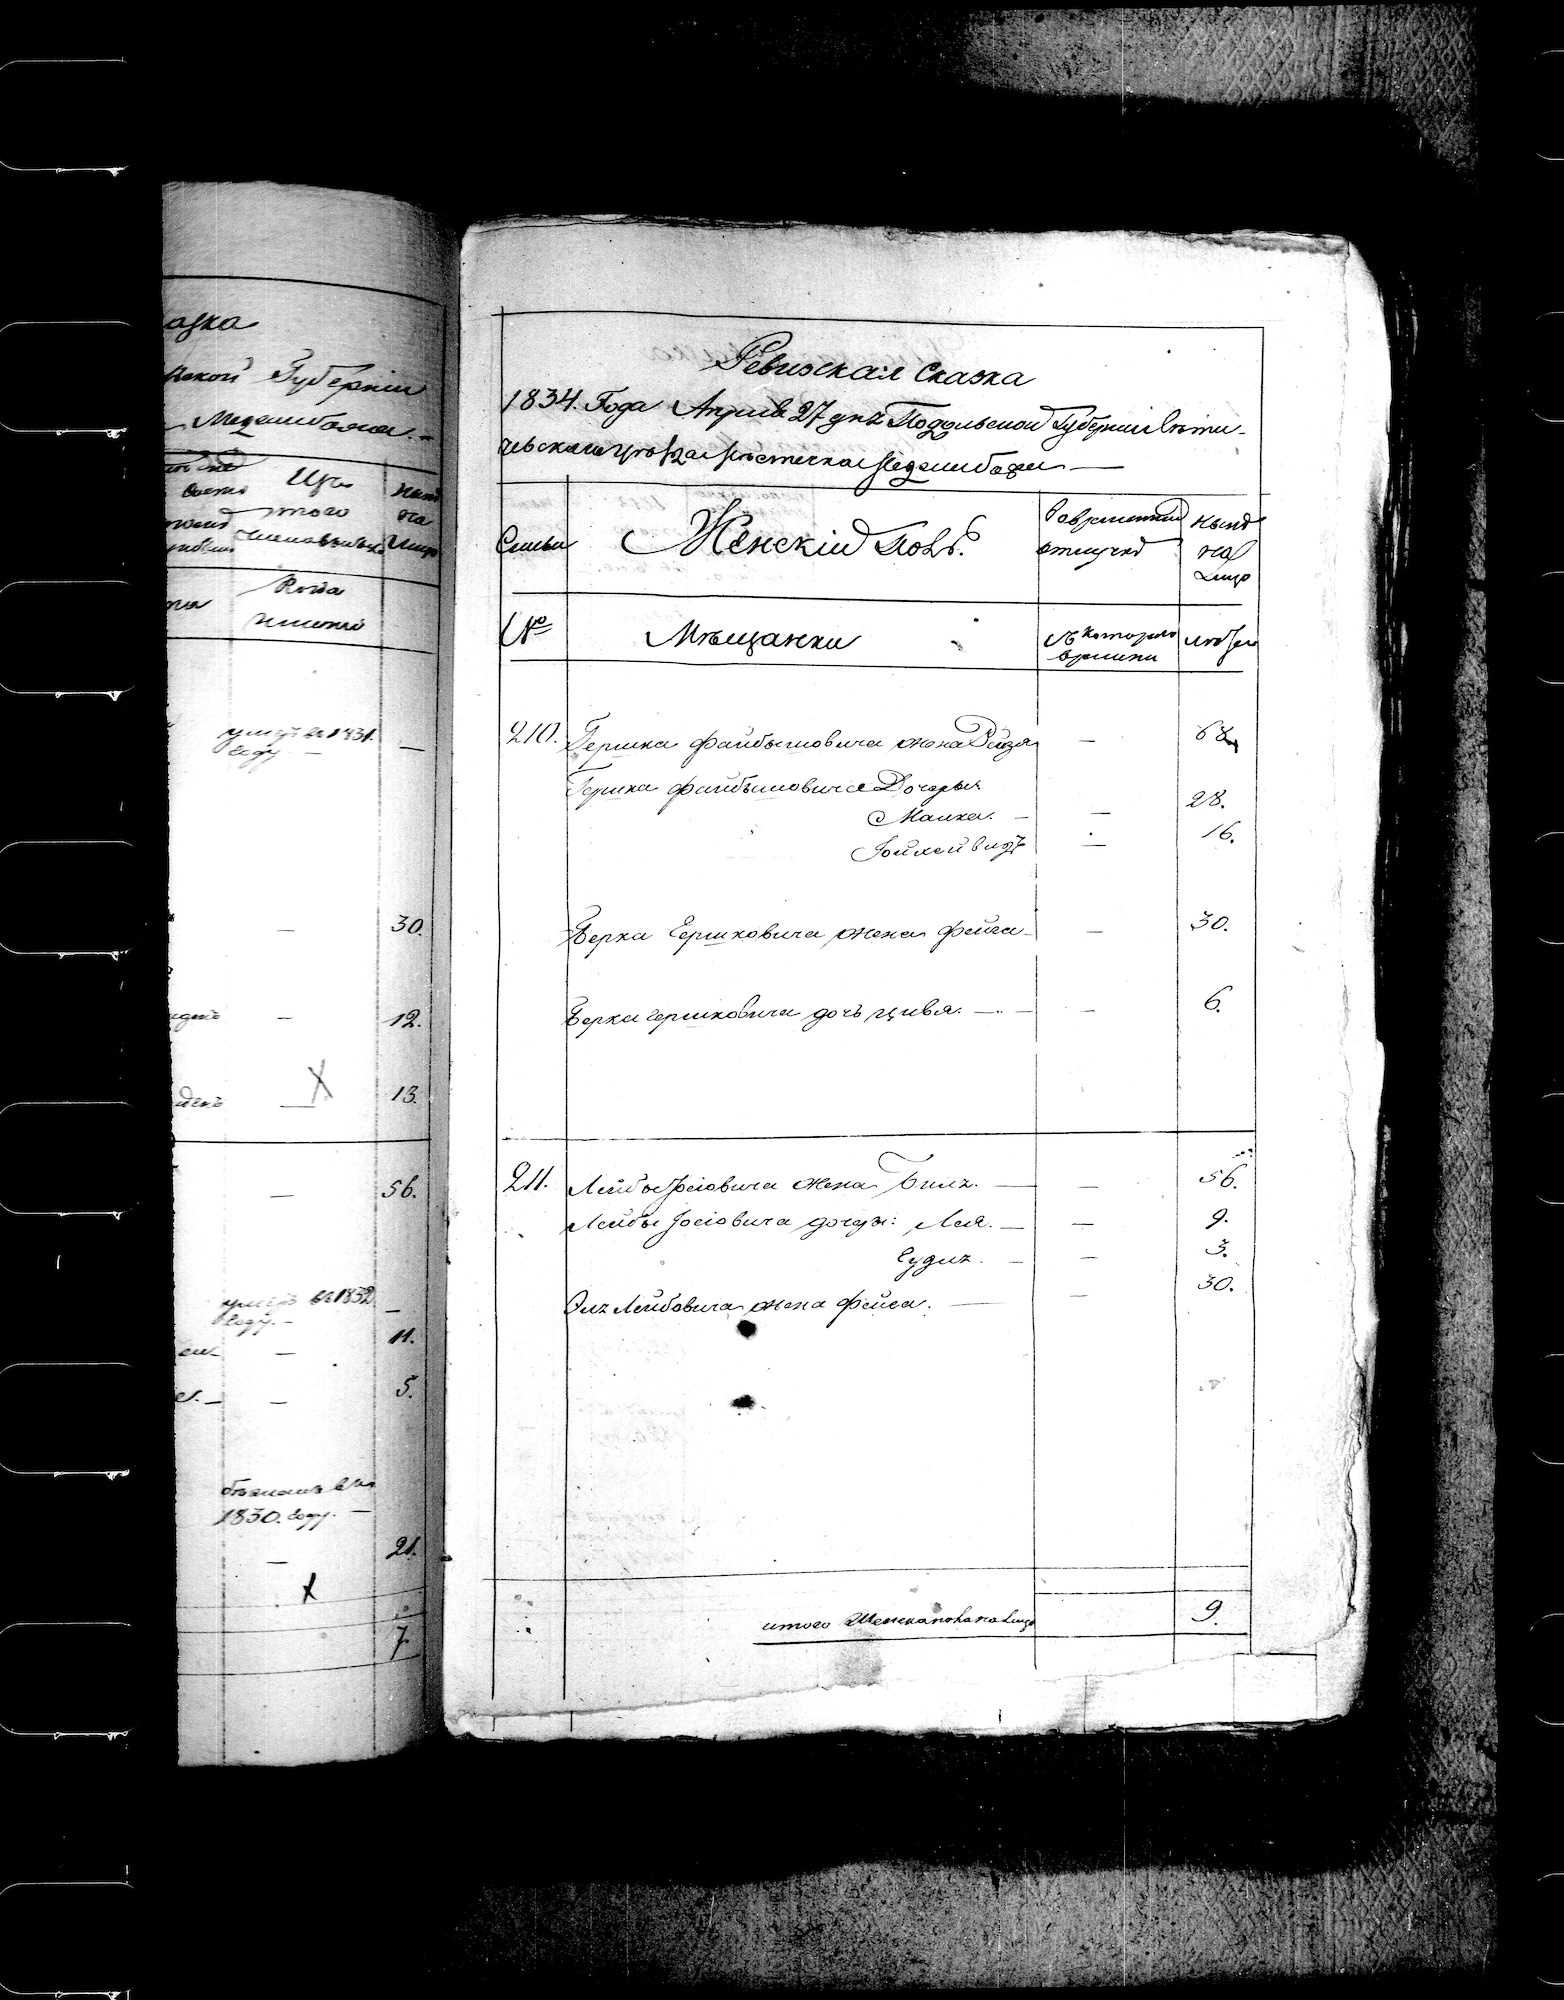 азка
ской Губерніи
Меджибожа.
Изъ
того
числа выбыло
Нынѣ
на
лицо
Когда
именно
умеръ въ 1831.
году. —
—
— 30.
— 12.
— 13.
— 56.
умеръ въ 1832
году. — —
— 11.
— 5.
1830. году. —
— 21.
7.
Ревизская Сказка
1834. Года Апрѣля 27 дня Подольской Губерніи Лѣти-
чевскаго уѣзда мѣстечка Меджибожа —
Семьи Женскій Полъ. Во временной отлучкѣ Нынѣ на лицо
№ Мѣщанки Съ котораго времени Лѣта
210. Гершка Файбышовича жена Рейзя — 68
Гершка Файбышовича Дочеры:
Малка. — — 28.
— 16.
Берка Гершковича жена Фейга — — 30.
Берка Гершковича дочь Цивья. — — — 6.
211. Лейбы Іосіовича жена Билъ. — — 56.
Лейбы Іосіовича дочеры: Лея. — — 9.
Судль. — — 3.
Элъ Лейбовича жена Фейга. — — 30.
итого Женска пола на лицо 9.